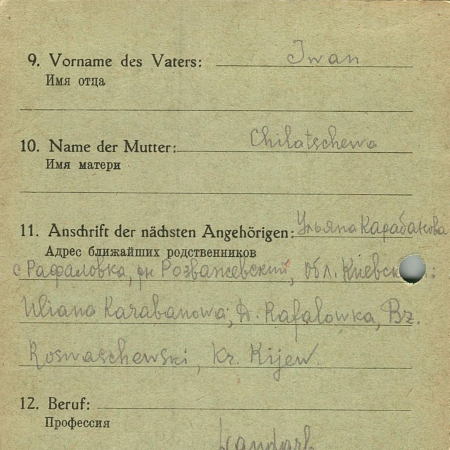 9. Vorname des Vaters: Iwan
Имя отца
10. Name der Mutter: Chilatschewa
Имя матери
11. Anschrift der nächsten Angehörigen: Ульяна Карабанова
Адрес ближайших родственников
с Рафаловка, рн Розважевский, Обл. Киевск :
Uliana Karabanowa, D. Rafalowka, Bz.
Roswaschewski, Kr. Kijew.
12. Beruf:
Профессия